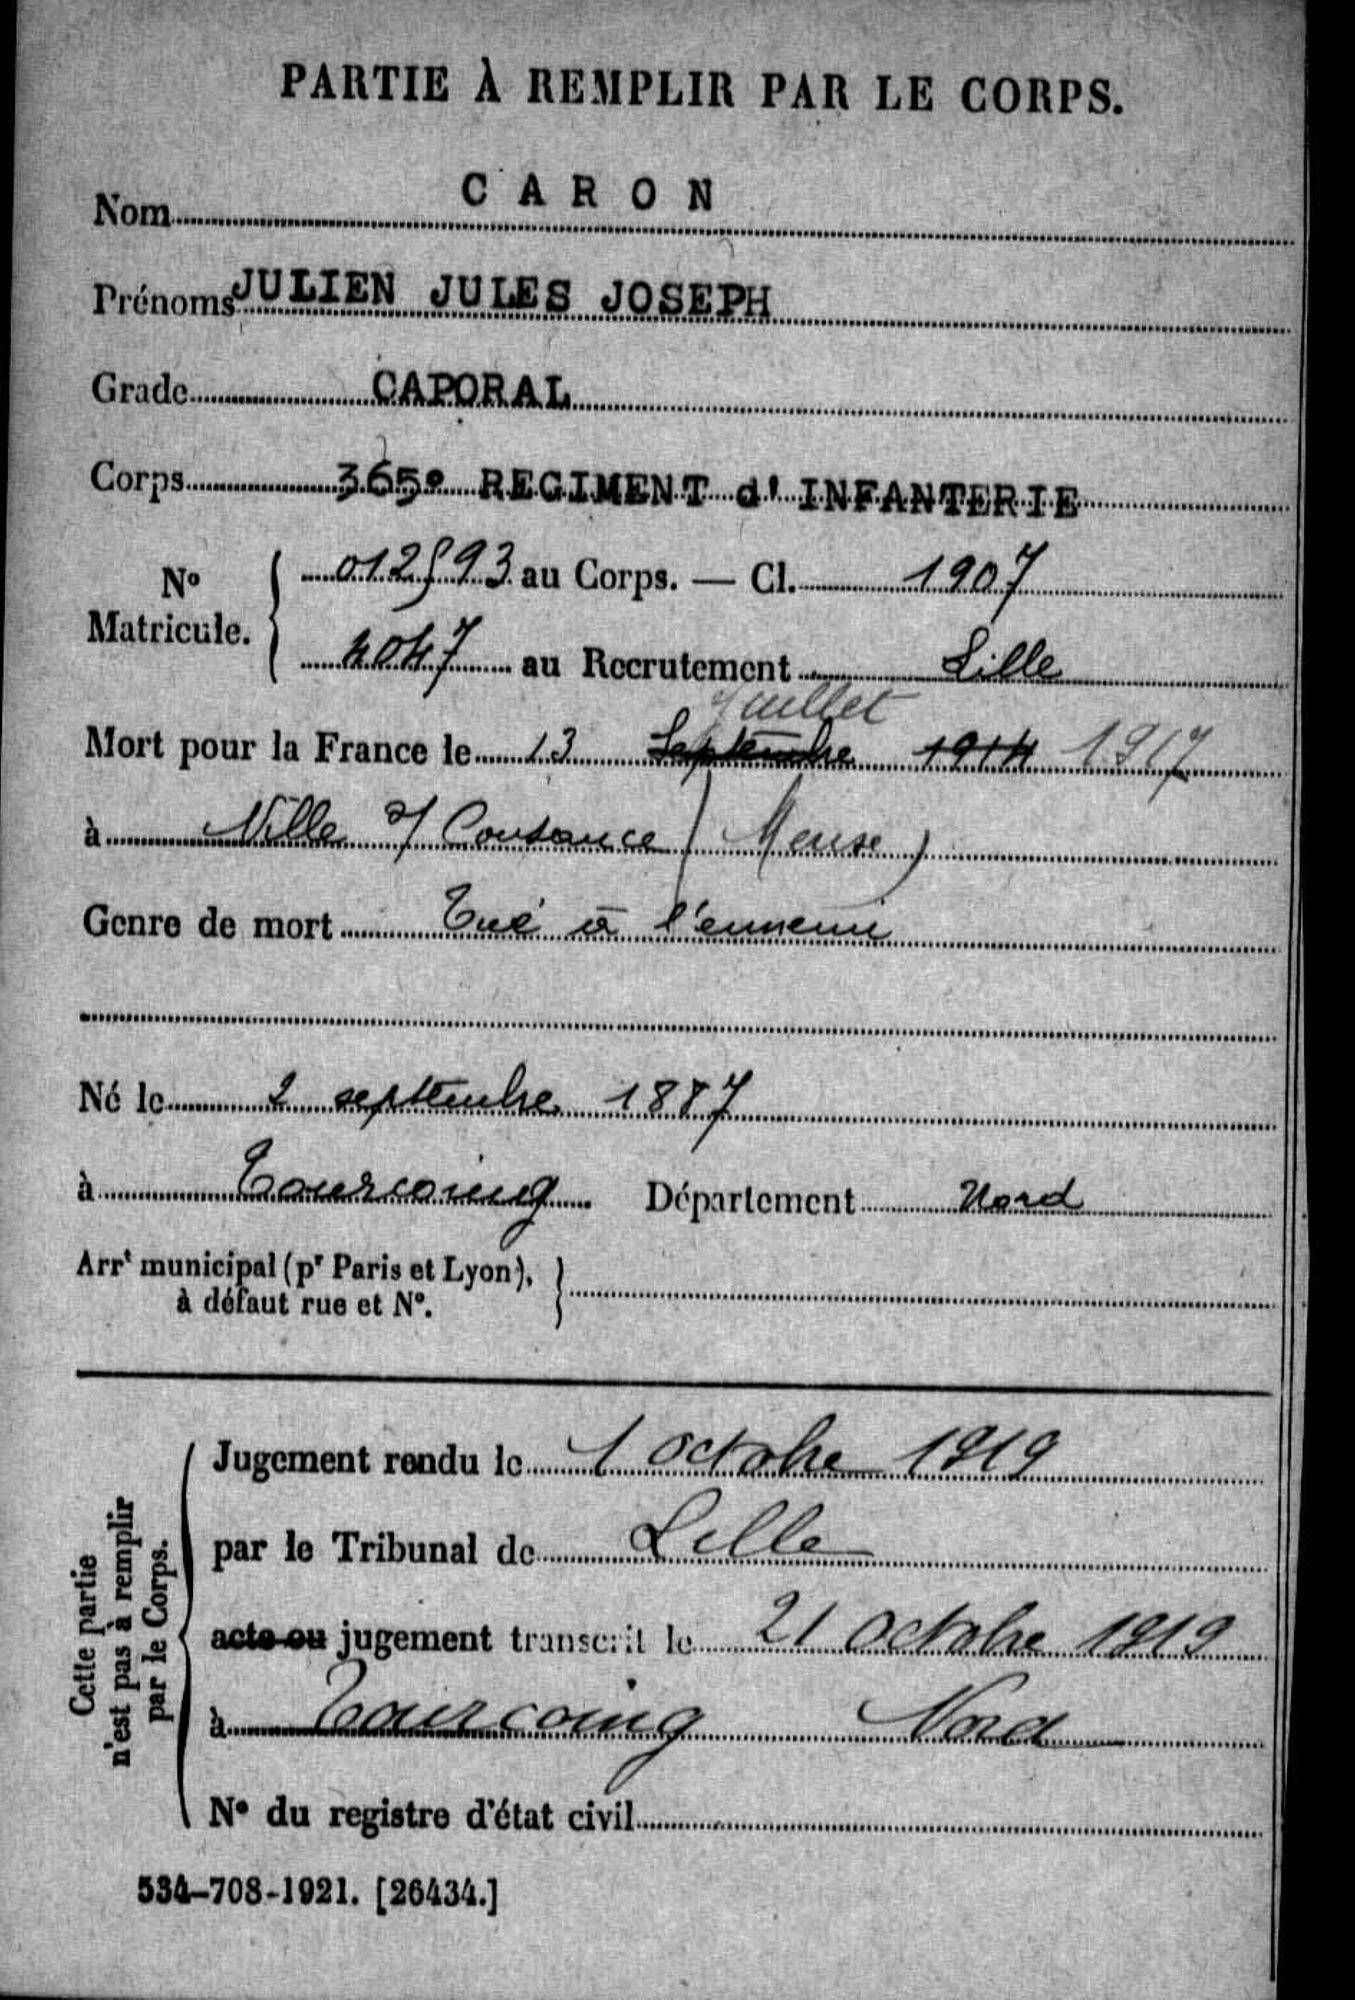 PARTIE À REMPLIR PAR LE CORPS.
Nom CARON
Prénoms JULIEN JULES JOSEPH
Grade CAPORAL
Corps 365e REGIMENT d'INFANTERIE
No Matricule. { 012593 au Corps. — Cl. 1907
4047 au Recrutement Lille
Juillet
Mort pour la France le 13 Septembre 1914 1917
à Ville s/ Cousance (Meuse)
Genre de mort Tué à l'ennemi
Né le 2 septembre 1887
à Tourcoing Département Nord
Arrt municipal (pr Paris et Lyon), }
à défaut rue et No.
Cette partie
n'est pas à remplir
par le Corps.
Jugement rendu le 1 octobre 1919
par le Tribunal de Lille
acte ou jugement transcrit le 21 octobre 1919
à Tourcoing Nord
No du registre d'état civil
534-708-1921. [26434.]